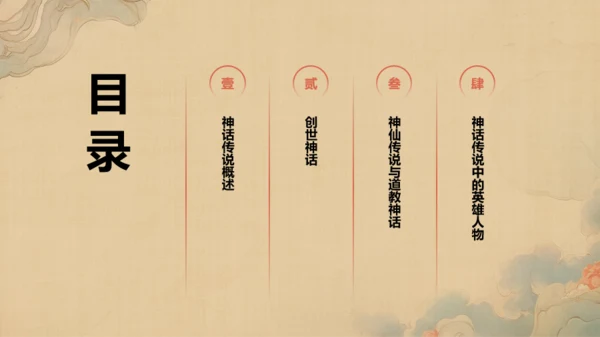 目录
壹
神话传说概述
贰
创世神话
叁
神仙传说与道教神话
肆
神话传说中的英雄人物